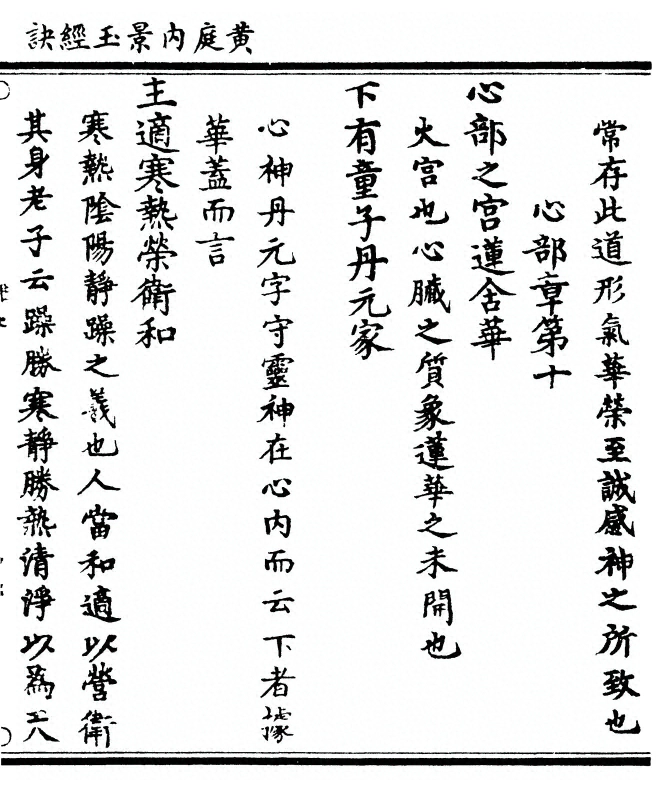 黃庭內景玉經訣
常存此道形氣華榮至誠感神之所致也
心部章第十
心部之宮蓮含華
火宮也心臟之質象蓮華之未開也
下有童子丹元家
心神丹元字守靈神在心內而云下者據
華蓋而言
主適寒熱榮衛和
寒熱陰陽靜躁之義也人當和適以營衛
其身老子云躁勝寒靜勝熱清淨以為天